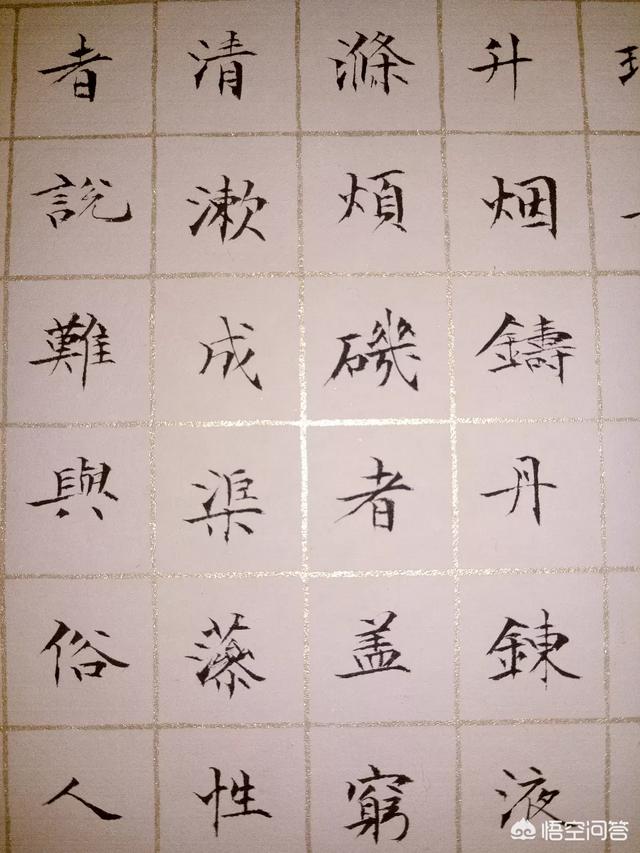 升烟鑄丹鍊液
滌煩磯者盖窮
清漱成渠藻性
者說難與俗人
悟空问答